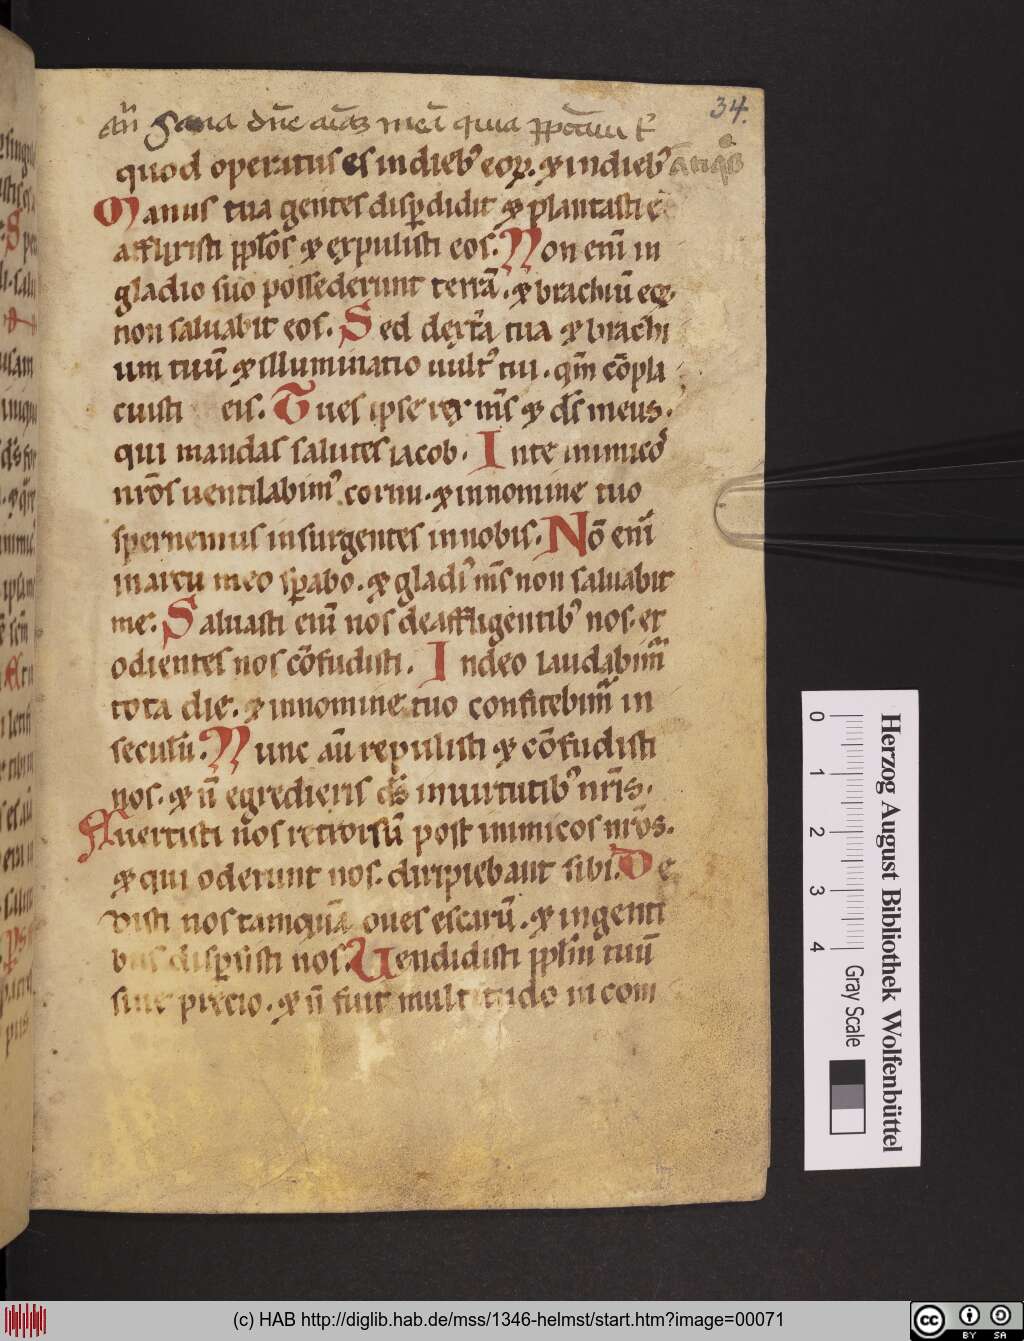 34.
Añ Sana dñe aīaȝ meā quia p̱p̱cāui t̄
quod operatus es indieb᾽ eoꝝ. ⁊ indieb᾽ ātiqͥs
Manus tua gentes disꝑdidit ⁊ plantasti ē
afflixisti pp̄los ⁊ expulisti eos. Non eni̅ in
gladio suo possederunt terrā. ⁊ brachiū eoꝝ
non saluabit eos. Sed dext̾a tua ⁊ brachi
um tuū ⁊ illuminatio uult᾽ tui. qm̄ cōpla
cuisti eis. Tu es ipse rex m̄s ⁊ ds̄ meus.
qui mandas salutes iacob. Inte inimicoſ
nr̄os uentilabim᾽ cornu. ⁊ innomine tuo
spernemus insurgentes innobis. Nō eni̅
inarcu meo sꝑabo. ⁊ gladi᾽ m̄s non saluabit
me. Saluasti eni̅ nos deaffligentib᾽ nos. et
odientes nos cōfudisti. Indeo laudabim̃
tota die. ⁊ innomine tuo confitebim̃ in
seculū. Nunc aū repulisti ⁊ cōfudisti
nos. ⁊ n̄ egredieris ds̄ inuirtutib᾽ nr̄is.
Auertisti nos retrorsū post inimicos nr̄os.
⁊ qui oderunt nos. diripiebant sibi. De
disti nos tamquā oues escarū. ⁊ ingenti
bus disꝑsisti nos. Uendidisti pp̄lm tuū
sine precio. ⁊ n̄ fuit multitudo in com
0
1
2
3
4
Gray Scale
Herzog August Bibliothek Wolfenbüttel
(c) HAB http://diglib.hab.de/mss/1346-helmst/start.htm?image=00071
cc BY SA